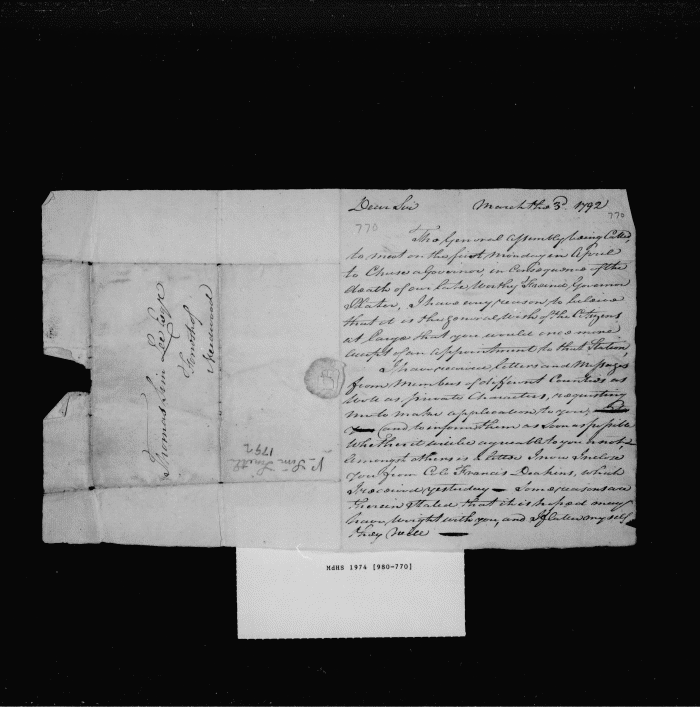 Dear Sir March the 3d. 1792
770
770
The General Assembly being Called
to meet on the first Monday in April
to Chuse a Governor, in Consequence of the
death of our Late Worthy Friend, Governor
Plater, I have every reason to believe
that it is the general Wish of the Citizens
at large that you would once more
accept of an appointment to that Station,
I have received Letters and Messages
from Members of different Counties as
Well as private Characters, requesting
me to make application to you,
and to inform them as Soon as possible
Whether it will be agreeable to you or not
Amongst others is a letter I now Inclose
you from Colo Francis Deakins, which
I received yesterday — Some reasons are
therein stated that it is hoped may
have Weight with you, and I flatter myself
they Will —
Thomas Sim Lee Esqr
Needwood
1792
MdHS 1974 [980-770]